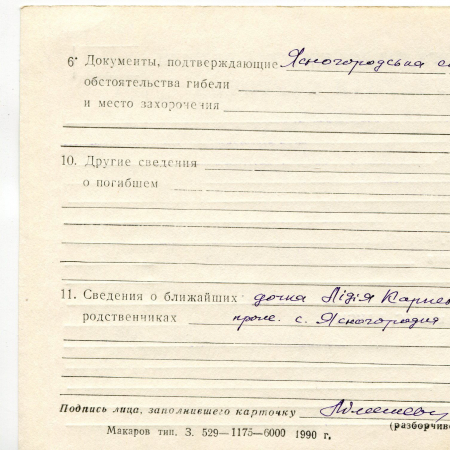 6· Документы, подтверждающие Ясногородська
обстоятельства гибели
и место захоронения
10. Другие сведения
о погибшем
11. Сведения о ближайших дочка Лідія
родственниках прож. с. Ясногородка
Подпись лица, заполнившего карточку
(разборчиво
Макаров тип. З. 529—1175—6000 1990 г.